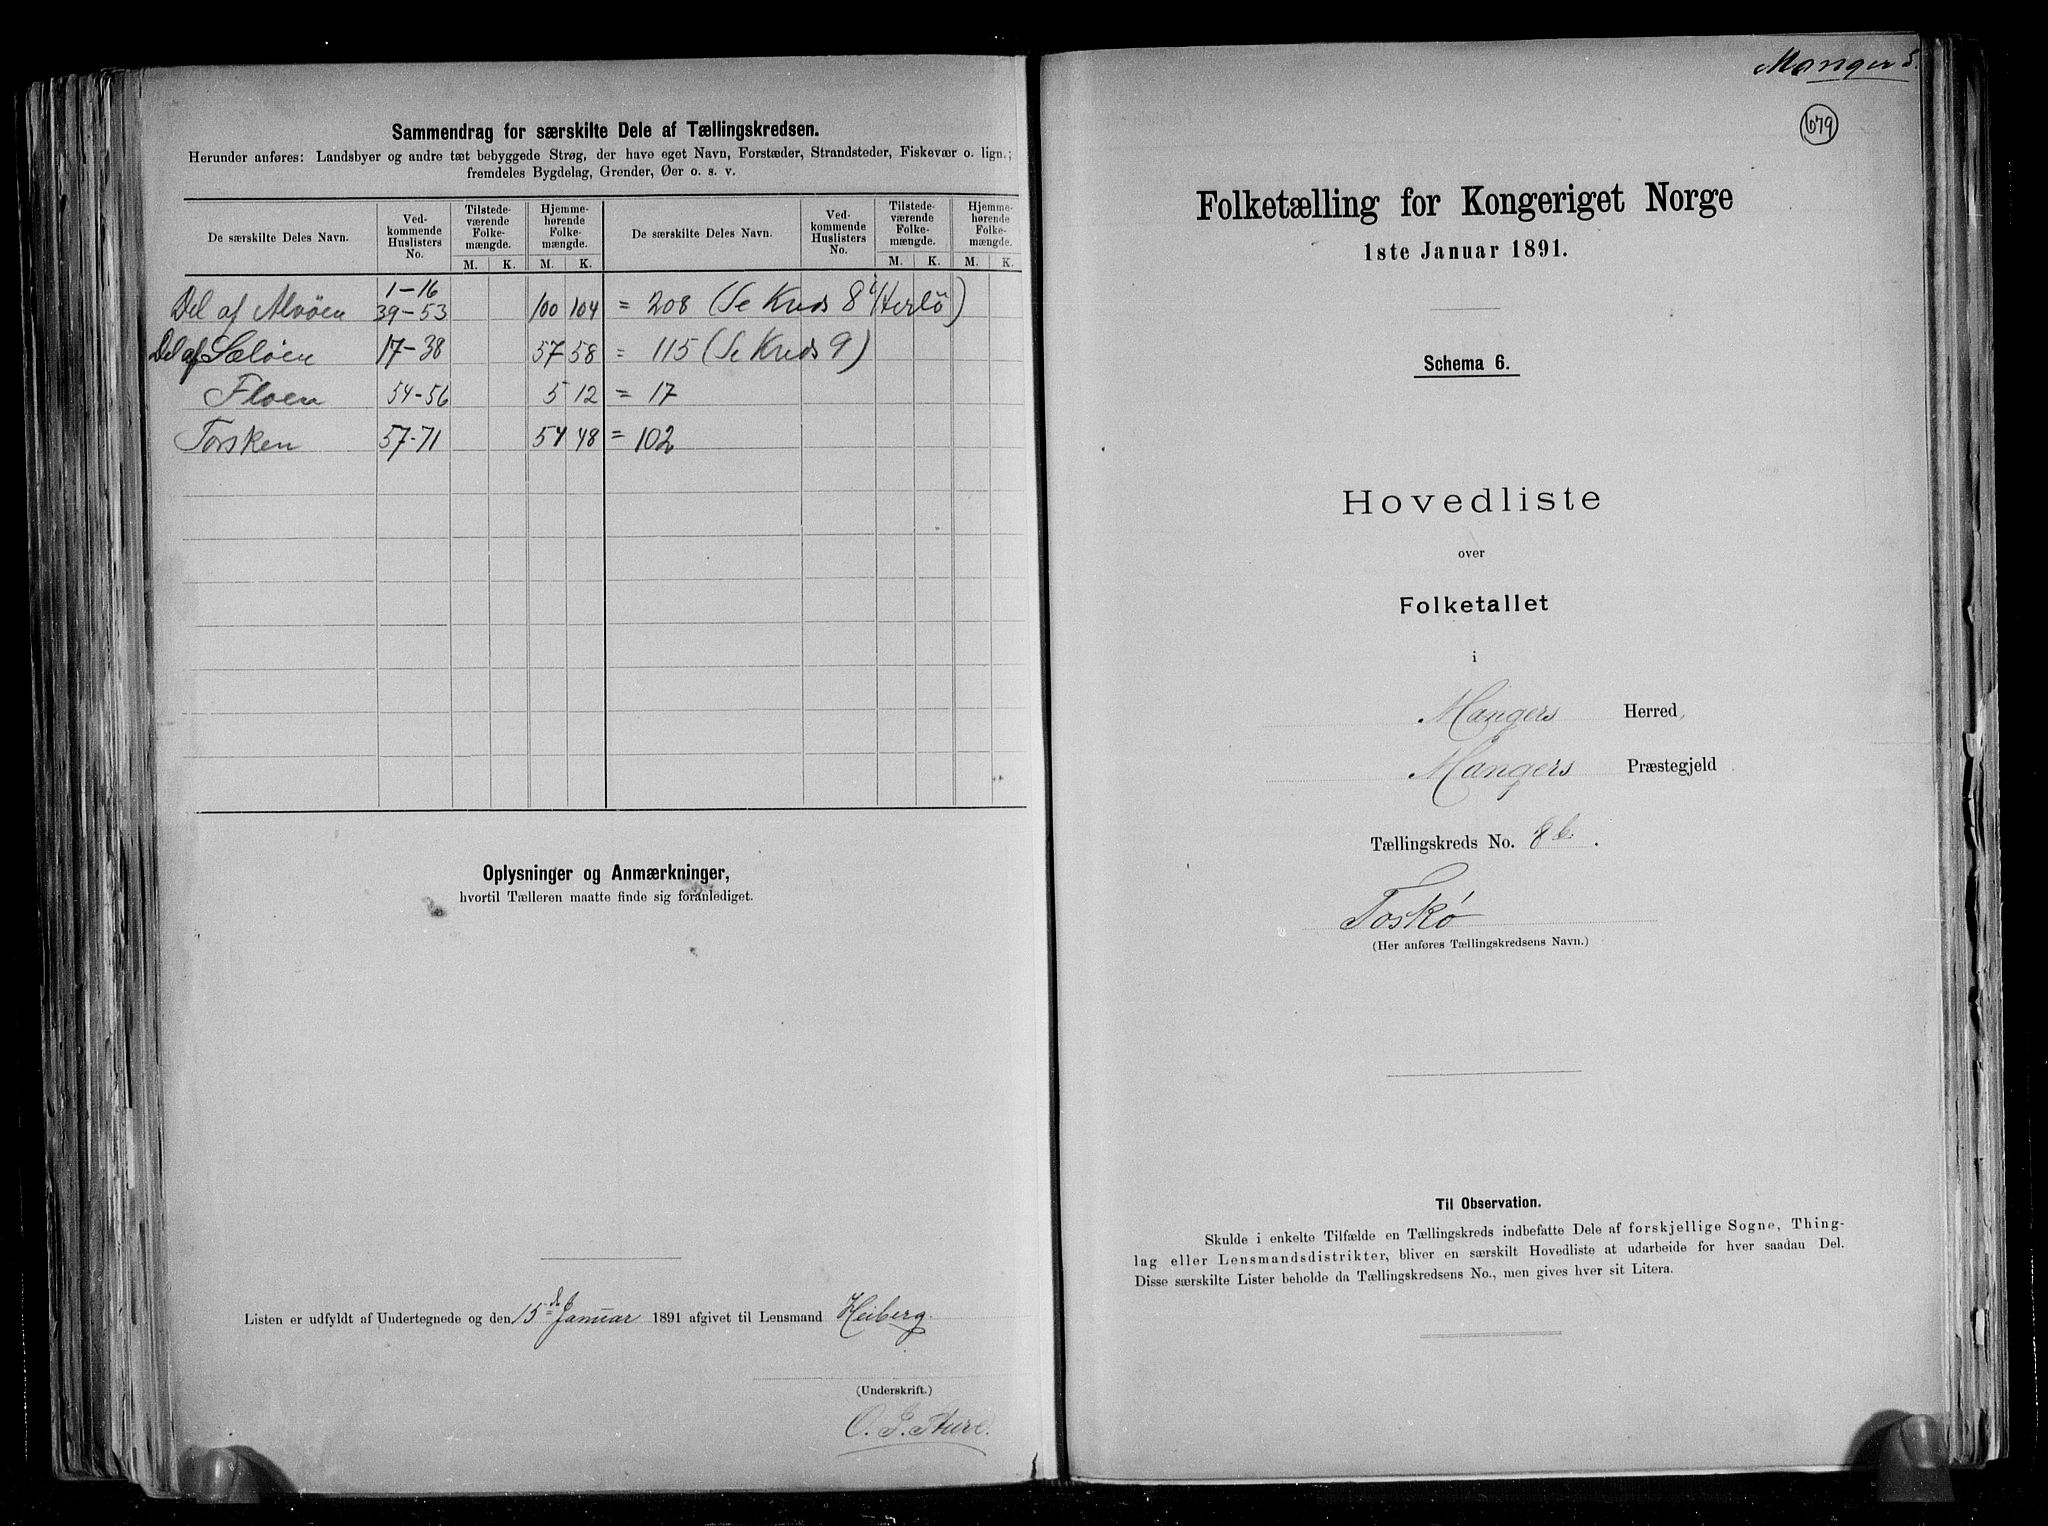 Sammendrag for særskilte Dele af Tællingskredsen.
Herunder anføres: Landsbyer og andre tæt bebyggede Strøg, der have eget Navn, Forstæder, Strandsteder, Fiskevær o. lign.;
fremdeles Bygdelag, Grender, Øer o. s. v.
De særskilte Deles Navn. Ved-kommende Huslisters No. Tilstede-værende Folke-mængde. Hjemme-hørende Folke-mængde. De særskilte Deles Navn. Ved-kommende Huslisters No. Tilstede-værende Folke-mængde. Hjemme-hørende Folke-mængde.
M. K. M. K. M. K. M. K.
1-16
Del af Alvøen 39-53 100 104 = 208 (Se Kreds 8 i Herlö)
Del af Sæløen 17-38 57 58 = 115 (Se Kreds 9)
Floen 54-56 5 12 = 17
Torsken 57-71 54 48 = 102
Oplysninger og Anmærkninger,
hvortil Tælleren maatte finde sig foranlediget.
Listen er udfyldt af Undertegnede og den 15de Januar 1891 afgivet til Lensmand Heiberg.
(Underskrift.)
Manger 5.
679
Folketælling for Kongeriget Norge
1ste Januar 1891.
Schema 6.
Hovedliste
over
Folketallet
i
Mangers Herred,
Mangers Præstegjeld
Tællingskreds No. 8 b.
Toskø
(Her anføres Tællingskredsens Navn.)
Til Observation.
Skulde i enkelte Tilfælde en Tællingskreds indbefatte Dele af forskjellige Sogne, Thing-
lag eller Lensmandsdistrikter, bliver en særskilt Hovedliste at udarbeide for hver saadan Del.
Disse særskilte Lister beholde da Tællingskredsens No., men gives hver sit Litera.